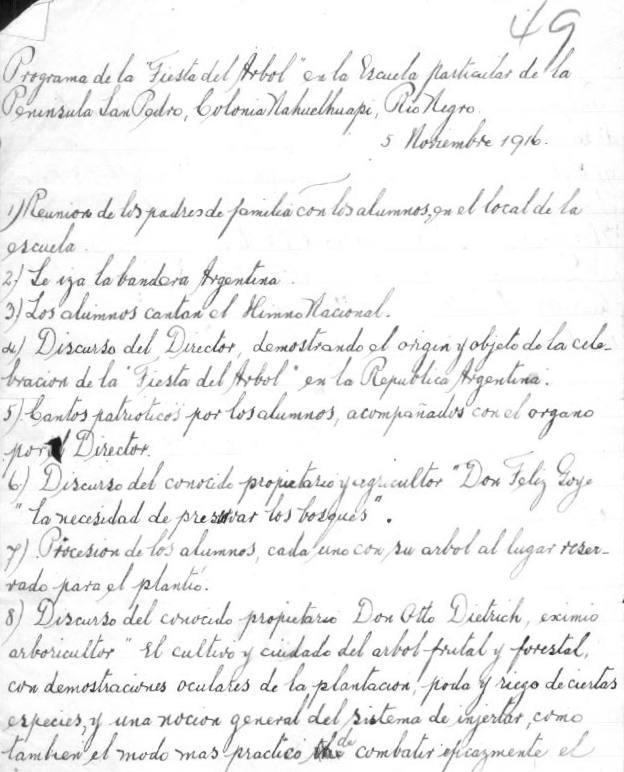 49
Programa de la "Fiesta del Arbol" en la Escuela particular de la
Peninsula San Pedro, Colonia Nahuelhuapi, Rio Negro.
5 Noviembre 1916.
1) Reunion de los padres de familia con los alumnos, en el local de la
escuela.
2) Se iza la bandera Argentina.
3) Los alumnos cantan el Himno Nacional.
4) Discurso del Director, demostrando el origin y objeto de la cele-
bracion de la "Fiesta del Arbol" en la Republica Argentina.
5) Cantos patrioticos por los alumnos, acompañados con el organo
por el Director.
6) Discurso del conocido propietario y agricultor "Don Feliz Goye
"la necesidad de preservar los bosques".
7) Procesion de los alumnos, cada uno con su arbol al lugar reser-
vado para el plantio.
8) Discurso del conocido propietario Don Otto Dietrich, eximio
arboricultor "El cultivo y ciudado del arbol frutal y forestal,
con demostraciones oculares de la plantacion, poda y riego de ciertas
especies, y una nocion general del sistema de injertar, como
tambien el modo mas practico de combatir eficazmente el